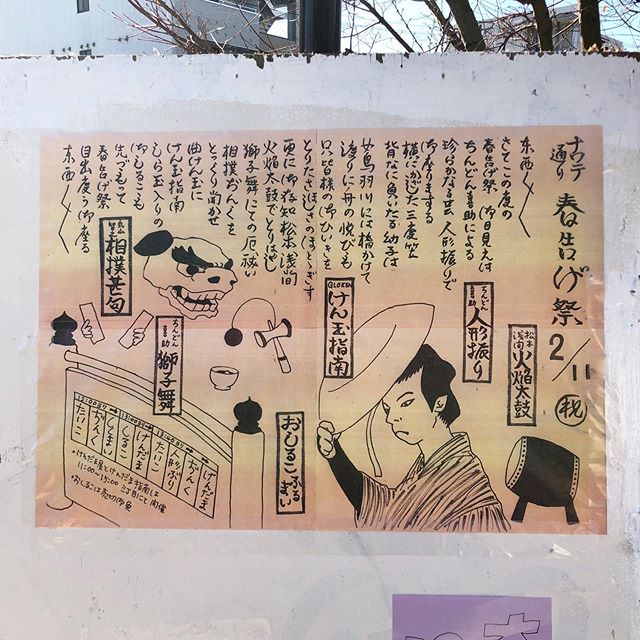 ナワテ通り 春告げ祭 2/11 祝
松本浅間 火焔太鼓
東西〱
さてこの度の
春告げ祭 御目見えは
ちんどん喜助による
珍らかな芸 人形振りで
御座りまする
横にかじた三度笠
背なに負いたる幼子は
女鳥羽川には橋かけて
渡りに舟の悦びも
只々皆様の御ひいきを
とりたさほしさのほととぎす
更に御存知松本浅間
火焔太鼓でとりは逃し
獅子舞にての厄祓い
相撲おんくを
とっくり聞かせ
曲けん玉に
けん玉指南
しら玉入りの
御しるこも
先づもって
春告げ祭
目出度う御座る
東西〱
ちんどん喜助 人形振り
GLOKEN けん玉指南
相撲甚句
ちんどん喜助 獅子舞
おしるこふるまい
けんだま
おんく
人形ぶり
たいこ
けんだま
ししまい
おんく
たいこ
・けんだま屋とけんだま指南は
11:00〜15:00 二丁目にて開催
・おしるこは売切御免